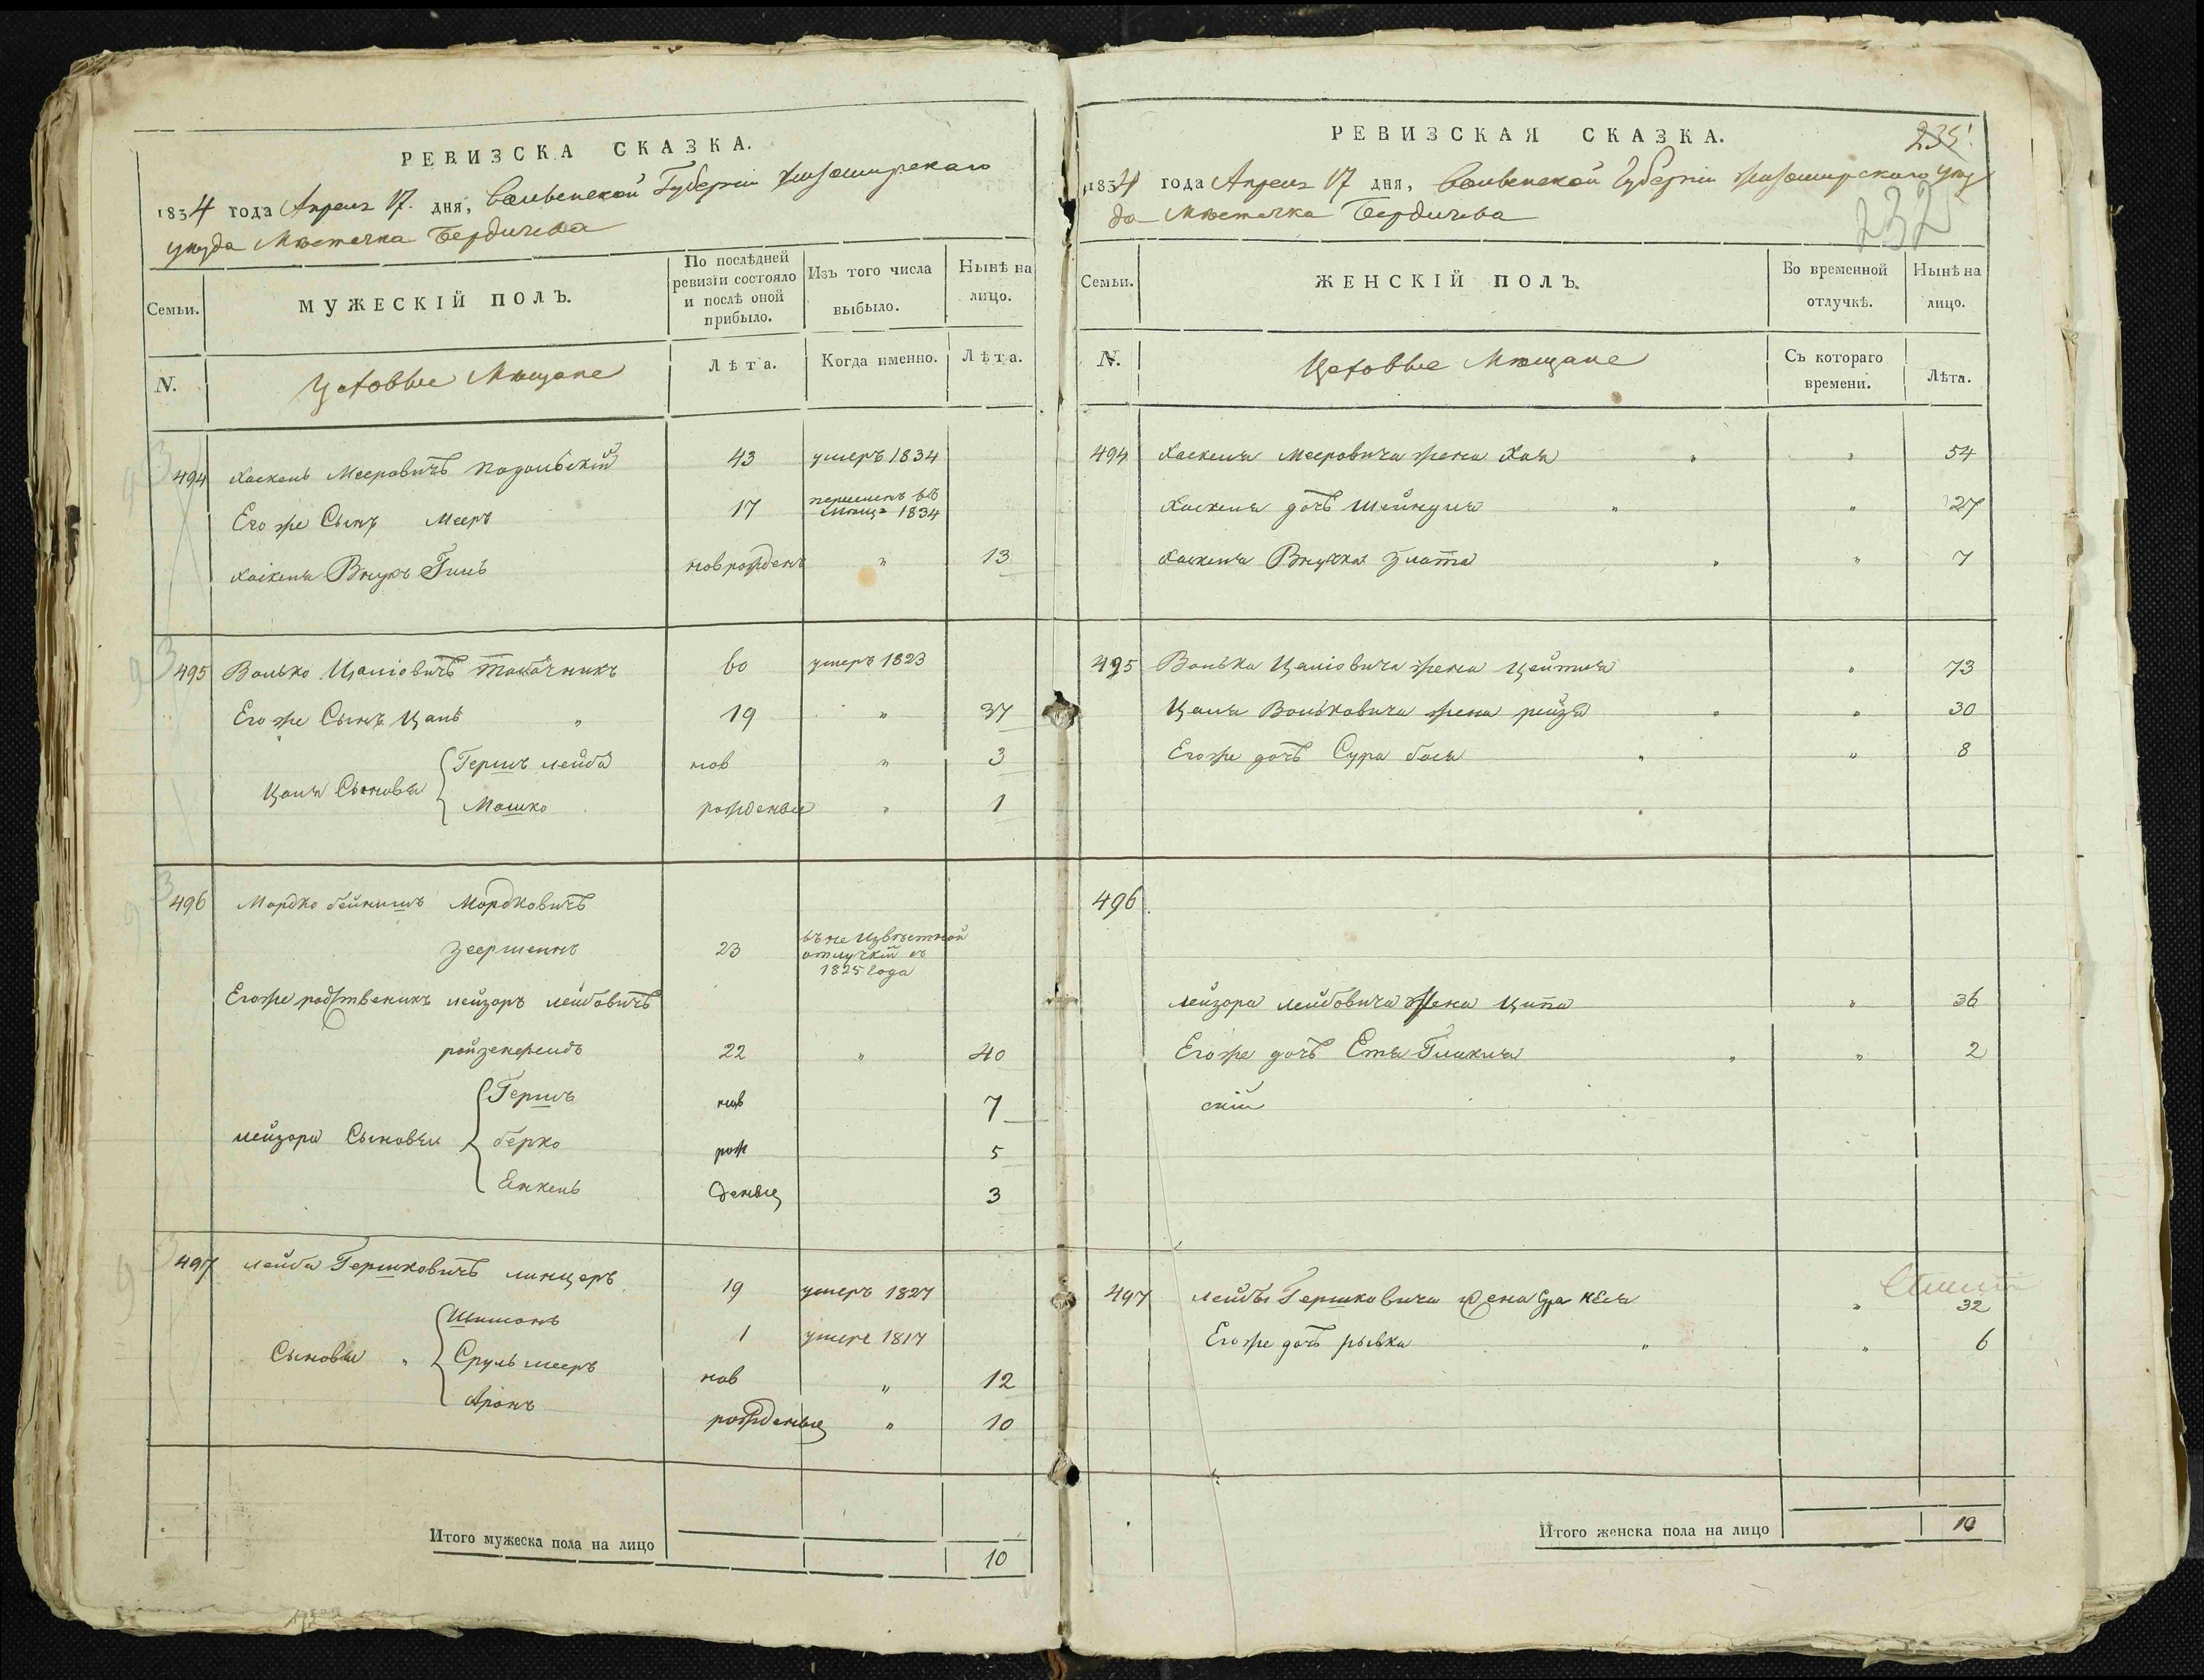 РЕВИЗСКА СКАЗКА.
1834 года Апреля 17. дня, Волынской Губернии Житомирского
уезда Местечка Бердичева
Семьи.
МУЖЕСКІЙ ПОЛЪ.
По послѣдней
ревизіи состояло
и послѣ оной
прибыло.
Изъ того числа
выбыло.
Нынѣ на
лицо.
N.
Цеховые Мещане
Лѣта.
Когда именно.
Лѣта.
494 Хаскель Мееровичъ Подольскій 43 умеръ 1834
Его же Сынъ Мееръ 17 1834
Хаскеля Внукъ новрожденъ " 13
495 Волько Цалiовичъ Табачникъ 60 умеръ 1823
Его же Сынъ Цаль " 19 " 37
Цаля Сыновья Гершъ лейба нов " 3
Мошко рожденые " 1
496 Мордко бейнишъ Мордковичъ
23 въ не Извѣстной
отлучкѣ съ
1825 Года
Его же родственикъ лейзоръ лейбовичъ
22 " 40
лейзора Сыновья Гершъ нов 7
берко рож 5
Янкель деные 3
497 лейба Гершковичъ линцеръ 19 умеръ 1827
Сыновья " Шимонъ 1 умеръ 1817
Сруль мееръ нов " 12
Аронъ рожденые " 10
Итого мужеска пола на лицо 10
РЕВИЗСКАЯ СКАЗКА.
235
1834 года Апреля 17 дня, Волынской Губернии Житомирского уез
да Местечка Бердичева
232
Семьи.
ЖЕНСКІЙ ПОЛЪ.
Во временной
отлучкѣ.
Нынѣ на
лицо.
N.
Цеховые Мещане
Съ котораго
времени.
Лѣта.
494 Хаскеля Мееровича жена Хая " " 54
Хаскеля дочь Шейндля " " 27
Хаскеля Внучка Злата " " 7
495 Волька Цалiовича жена Цейтля " 73
Цаля Вольковича жена рейзя " " 30
Его же дочь Сура бася " " 8
"
496
лейзора лейбовича жена Ципа " 36
Его же дочь Етя " " 2
497 лейбы Гершковича жена Сура " 32
Его же дочь рывка " " 6
Итого женска пола на лицо 10